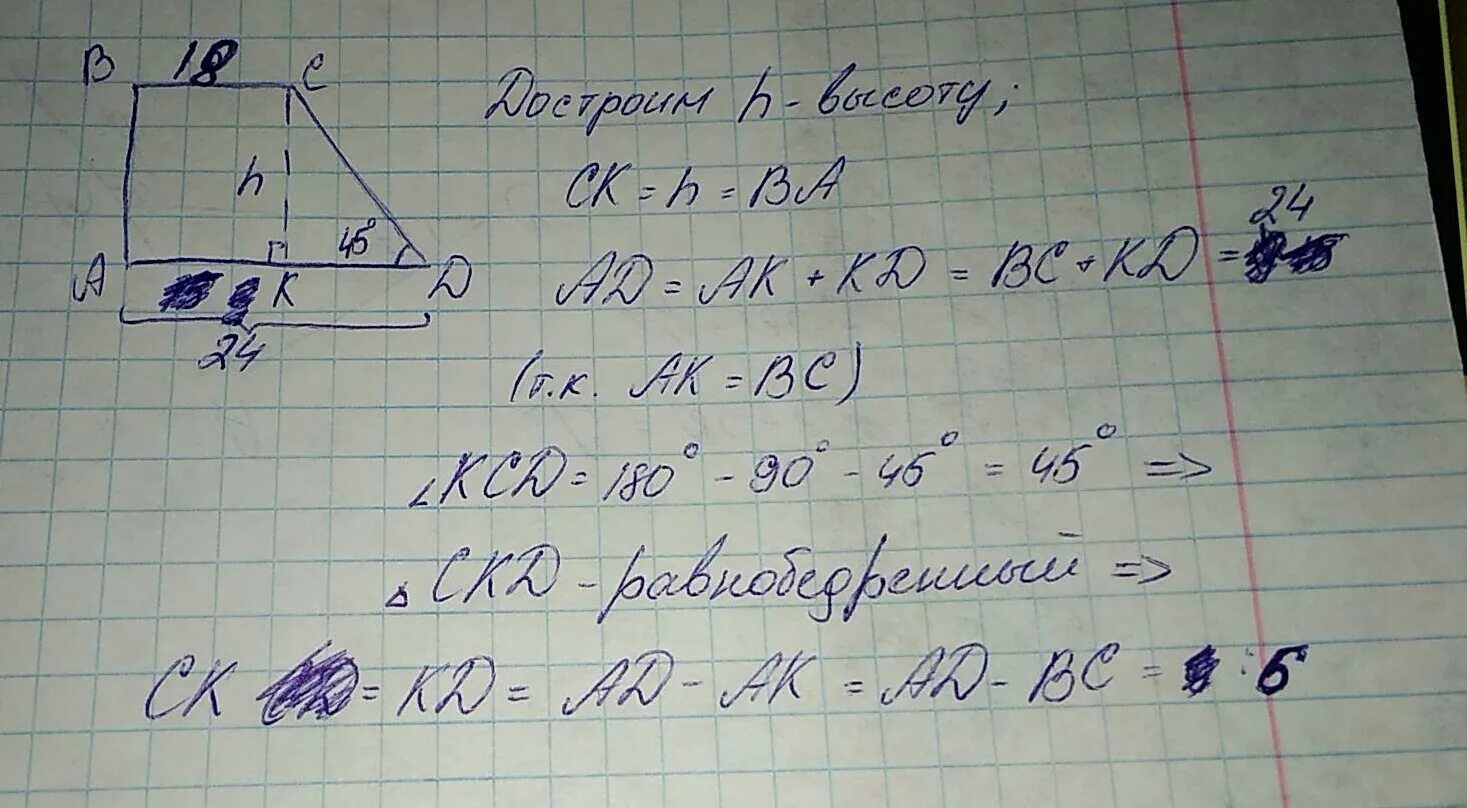 B 18 C
h
45°
A K D
24
Достроим h - высоту;
CK = h = BA
AD = AK + KD = BC + KD = 24
(т.к. AK = BC)
∠KCD = 180° - 90° - 45° = 45° =>
△ CKD - равнобедренный =>
CK = KD = AD - AK = AD - BC = 6